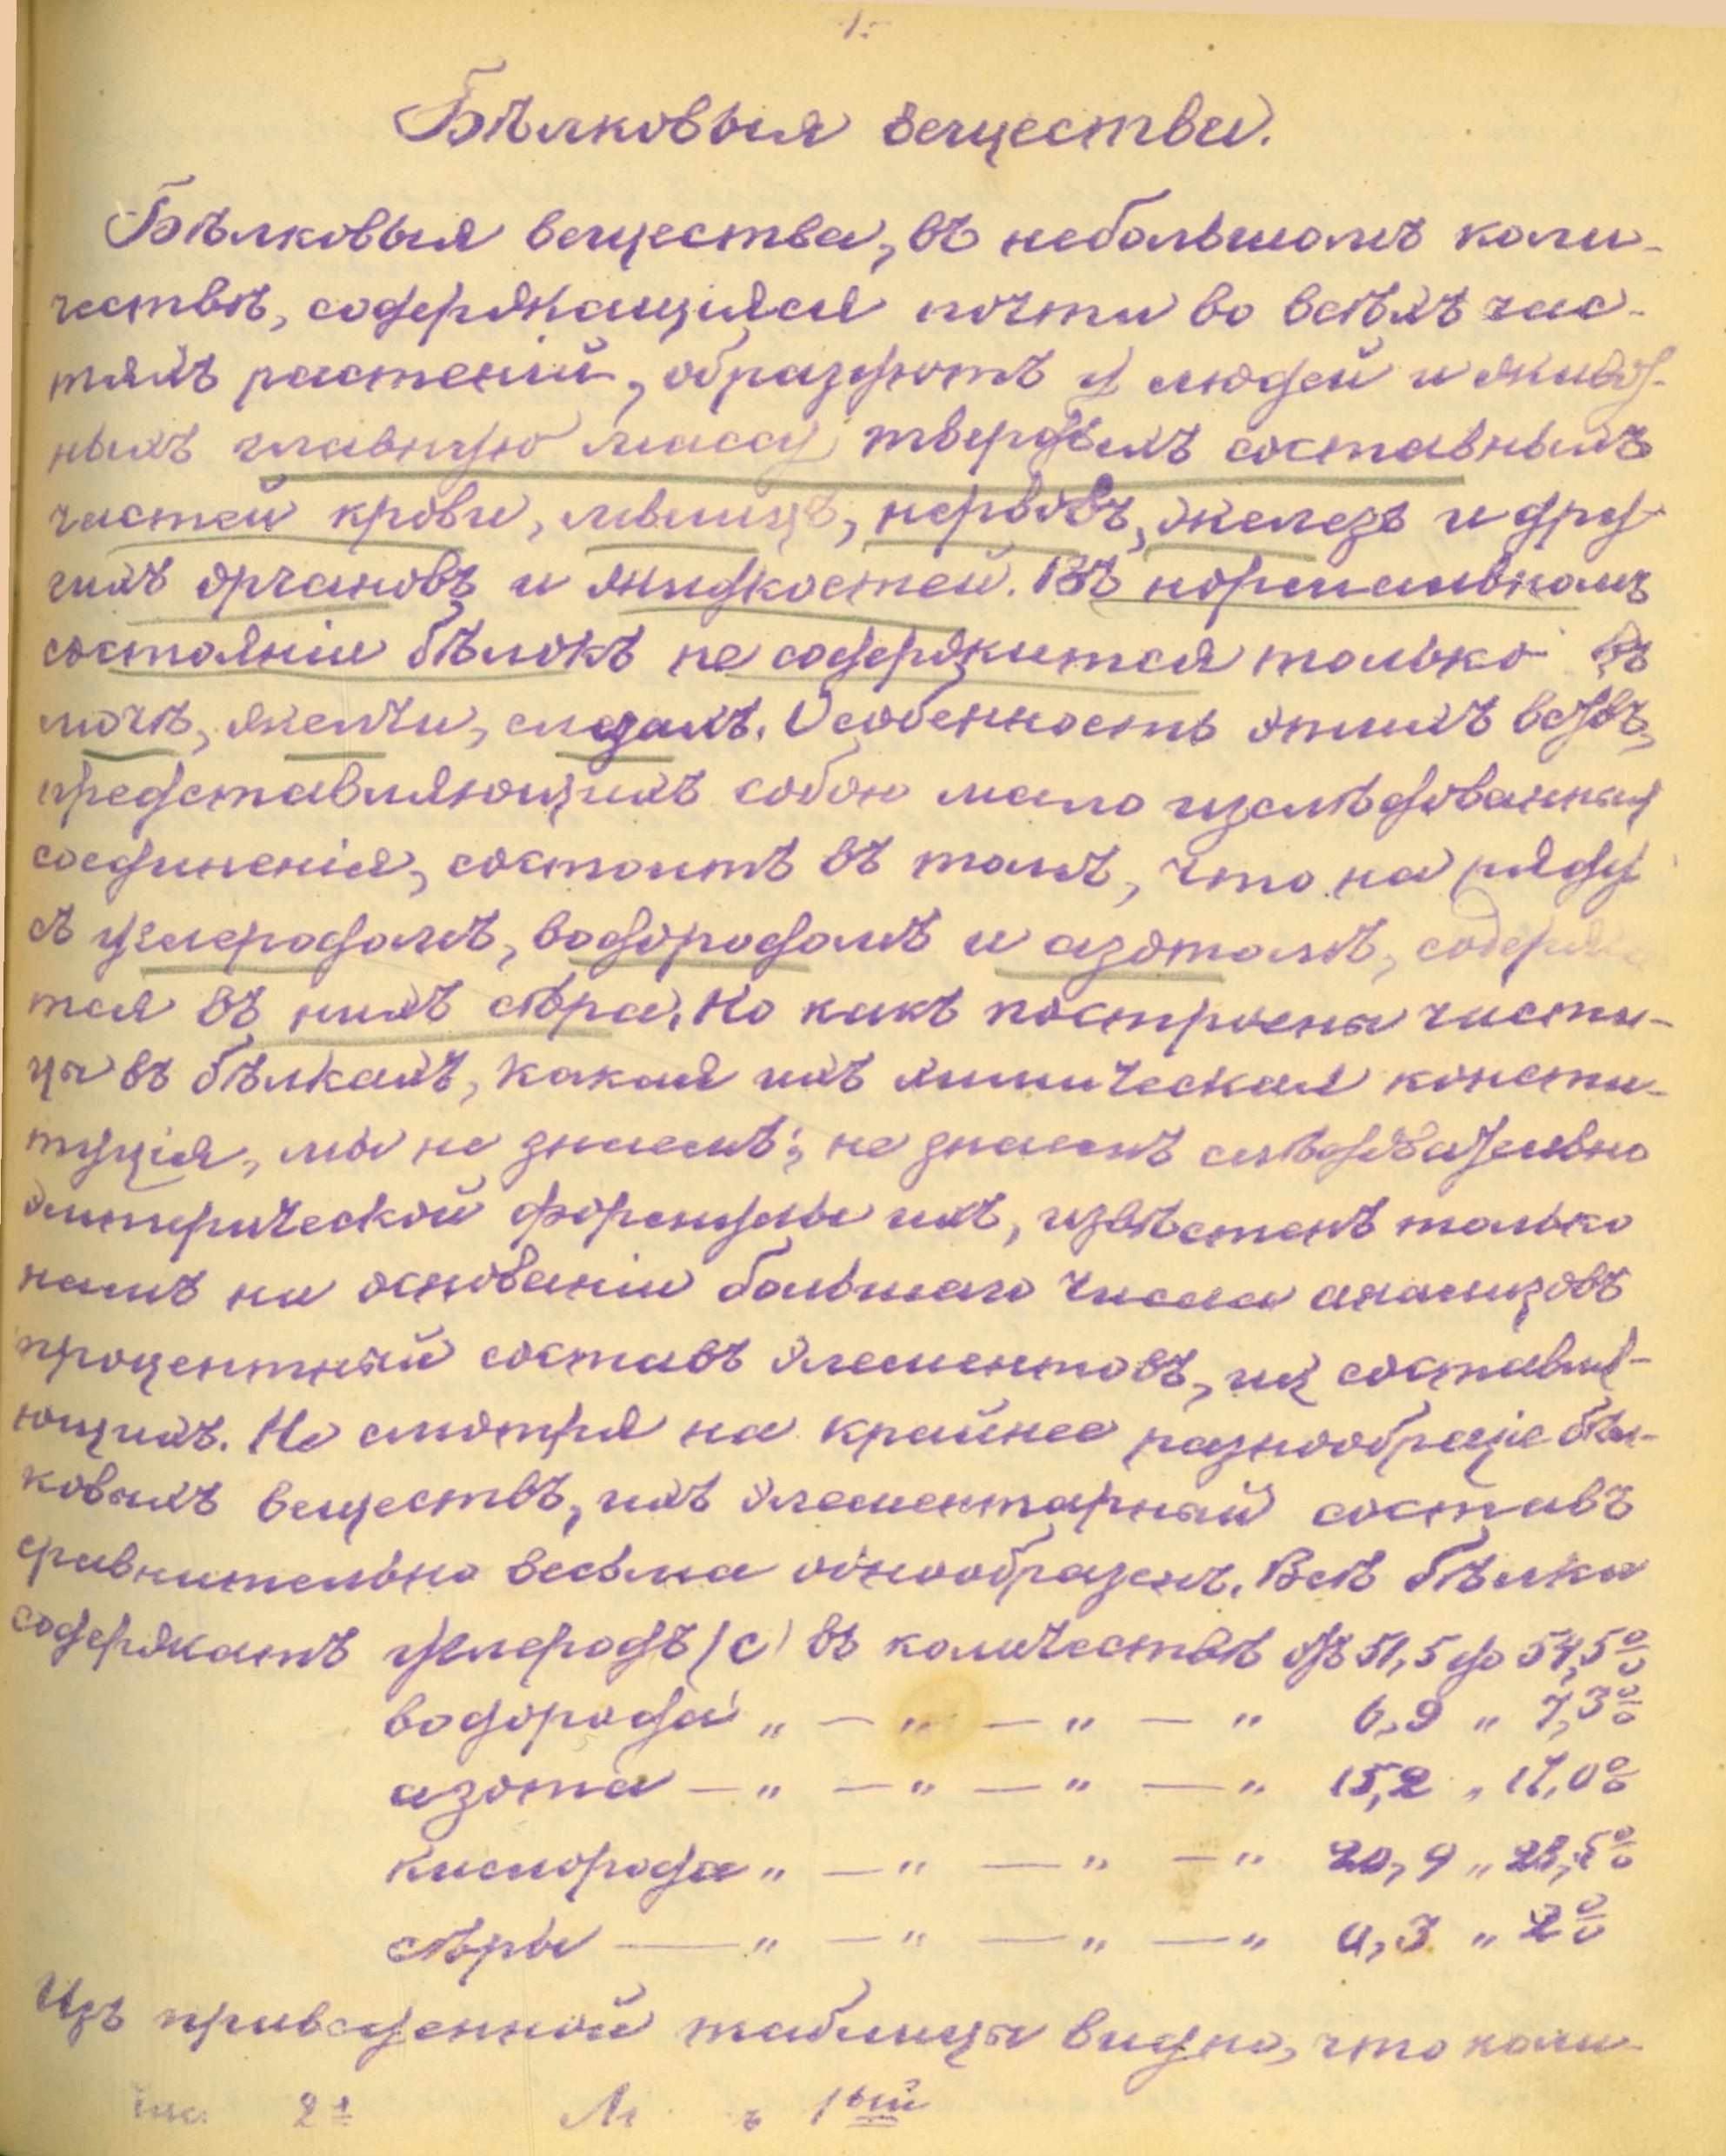 1.
Бѣлковыя вещества.
Бѣлковыя вещества, въ небольшомъ коли-
чествѣ, содержащіяся почти во всѣхъ час-
тяхъ растеній, образуютъ у людей и живот-
ныхъ главную массу твердыхъ составныхъ
частей крови, мышцъ, нервовъ, железъ и дру-
гихъ органовъ и жидкостей. Въ нормальномъ
состояніи бѣлокъ не содержится только въ
мочѣ, желчи, слезахъ. Особенность этихъ
представляющихъ собою мало изслѣдованныя
соединенія, состоитъ въ томъ, что на ряду
съ углеродомъ, водородомъ и азотомъ, содержи
тся въ нихъ сѣра. Но какъ построены части-
цы въ бѣлкахъ, какая ихъ химическая консти-
туція, мы не знаемъ; не знаемъ слѣдовательно
эмперической формулы ихъ, извѣстенъ только
намъ на основаніи большаго числа анализовъ
процентный составъ элементовъ, их составля-
ющихъ. Не смотря на крайнее разнообразіе бѣл-
ковыхъ веществъ, ихъ элементарный составъ
сравнительно весьма однообразенъ. Всѣ бѣлки
содержатъ углеродъ (С) въ количествѣ отъ 51,5 до 54,5%
водорода „ — „ — „ — „ 6,9 „ 7,3%
азота — „ — „ — „ — „ 15,2 „ 17,0%
кислорода „ — „ — „ — „ 20,9 „ 23,5%
сѣры — „ — „ — „ — „ 0,3 „ 2%
Изъ приведенной таблицы видно, что коли-
2 1ый